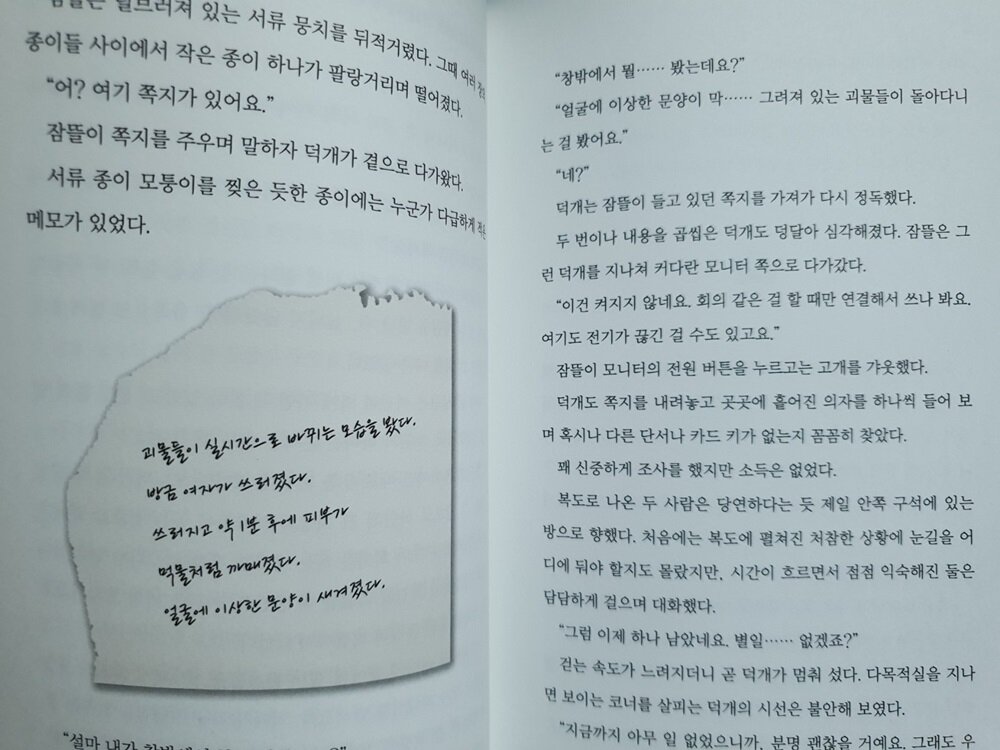 잠뜰은 널브러져 있는 서류 뭉치를 뒤적거렸다. 그때 여러 장의
종이들 사이에서 작은 종이 하나가 팔랑거리며 떨어졌다.
“어? 여기 쪽지가 있어요.”
잠뜰이 쪽지를 주우며 말하자 덕개가 곁으로 다가왔다.
서류 종이 모퉁이를 찢은 듯한 종이에는 누군가 다급하게 적은
메모가 있었다.
괴물들이 실시간으로 바뀌는 모습을 봤다.
방금 여자가 쓰러졌다.
쓰러지고 약 1분 후에 피부가
먹물처럼 까매졌다.
얼굴에 이상한 문양이 새겨졌다.
“설마 내가
“창밖에서 뭘…… 봤는데요?”
“얼굴에 이상한 문양이 막…… 그려져 있는 괴물들이 돌아다니
는 걸 봤어요.”
“네?”
덕개는 잠뜰이 들고 있던 쪽지를 가져가 다시 정독했다.
두 번이나 내용을 곱씹은 덕개도 덩달아 심각해졌다. 잠뜰은 그
런 덕개를 지나쳐 커다란 모니터 쪽으로 다가갔다.
“이건 켜지지 않네요. 회의 같은 걸 할 때만 연결해서 쓰나 봐요.
여기도 전기가 끊긴 걸 수도 있고요.”
잠뜰이 모니터의 전원 버튼을 누르고는 고개를 갸웃했다.
덕개도 쪽지를 내려놓고 곳곳에 흩어진 의자를 하나씩 들어 보
며 혹시나 다른 단서나 카드 키가 없는지 꼼꼼히 찾았다.
꽤 신중하게 조사를 했지만 소득은 없었다.
복도로 나온 두 사람은 당연하다는 듯 제일 안쪽 구석에 있는
방으로 향했다. 처음에는 복도에 펼쳐진 처참한 상황에 눈길을 어
디에 둬야 할지도 몰랐지만, 시간이 흐르면서 점점 익숙해진 둘은
담담하게 걸으며 대화했다.
“그럼 이제 하나 남았네요. 별일…… 없겠죠?”
걷는 속도가 느려지더니 곧 덕개가 멈춰 섰다. 다목적실을 지나
면 보이는 코너를 살피는 덕개의 시선은 불안해 보였다.
“지금까지 아무 일 없었으니까, 분명 괜찮을 거예요. 그래도 우